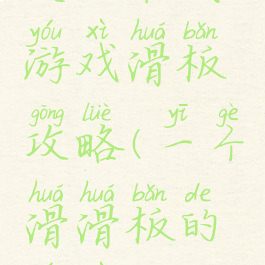 yóu xì huá bǎn
游戏滑板
gōng lüè yī gè
攻略(一个
huá huá bǎn de
滑滑板的